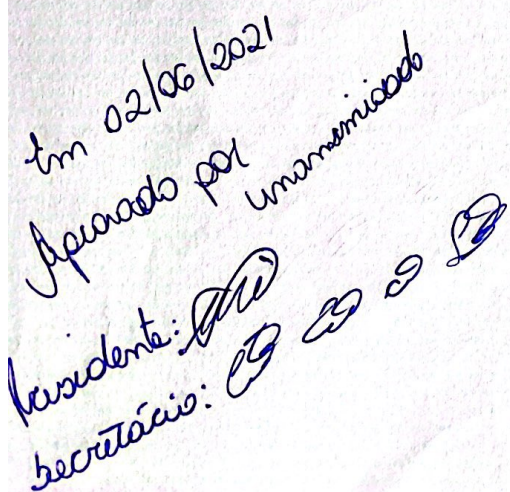 Em 02/06/2021
Aprovado por
unanimidade
Presidente:
Secretário: